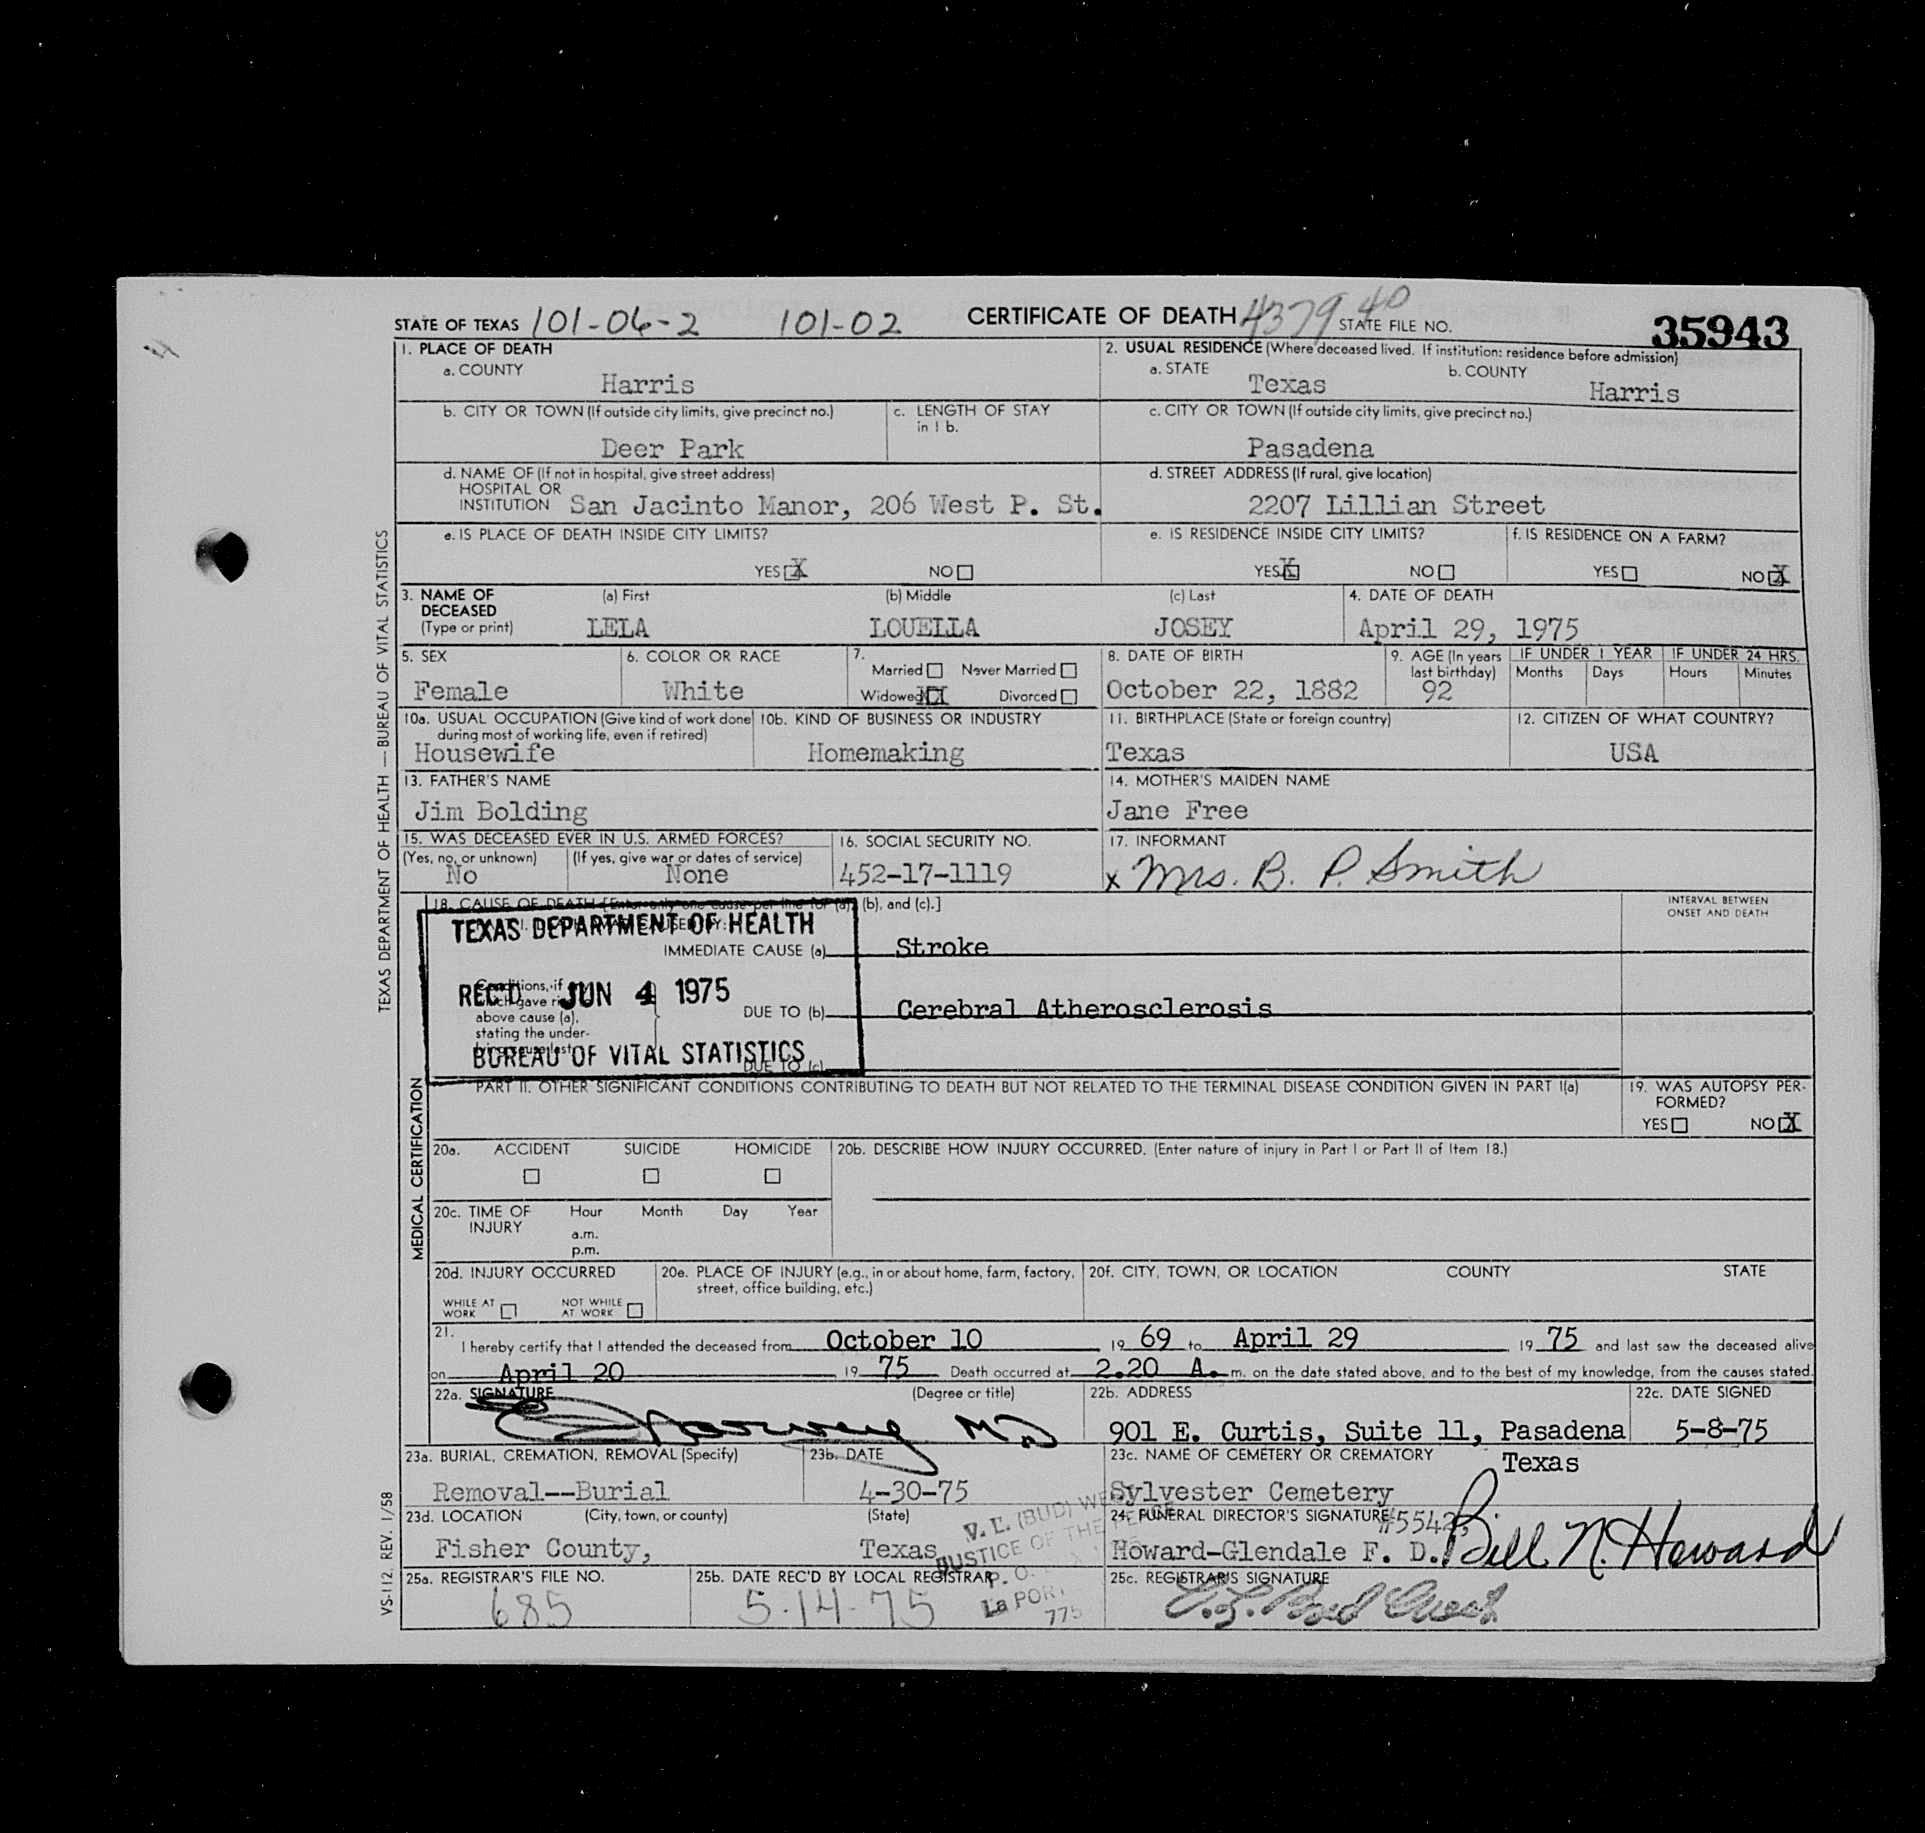 STATE OF TEXAS 101-06-2 101-02 CERTIFICATE OF DEATH 4379 40 STATE FILE NO. 35943
1. PLACE OF DEATH
a. COUNTY
Harris
2. USUAL RESIDENCE (Where deceased lived. If institution: residence before admission)
a. STATE
Texas
b. COUNTY
Harris
b. CITY OR TOWN (If outside city limits, give precinct no.)
Deer Park
c. LENGTH OF STAY
in 1 b.
c. CITY OR TOWN (If outside city limits, give precinct no.)
Pasadena
d. NAME OF (If not in hospital, give street address)
HOSPITAL OR
INSTITUTION San Jacinto Manor, 206 West P. St.
d. STREET ADDRESS (If rural, give location)
2207 Lillian Street
e. IS PLACE OF DEATH INSIDE CITY LIMITS?
YES X NO
e. IS RESIDENCE INSIDE CITY LIMITS?
YES X NO
f. IS RESIDENCE ON A FARM?
YES NO X
3. NAME OF
DECEASED
(Type or print)
(a) First
LELA
(b) Middle
LOUELLA
(c) Last
JOSEY
4. DATE OF DEATH
April 29, 1975
5. SEX
Female
6. COLOR OR RACE
White
7.
Married Never Married
Widowed X Divorced
8. DATE OF BIRTH
October 22, 1882
9. AGE (In years
last birthday)
92
IF UNDER 1 YEAR
Months Days
IF UNDER 24 HRS.
Hours Minutes
10a. USUAL OCCUPATION (Give kind of work done
during most of working life, even if retired)
Housewife
10b. KIND OF BUSINESS OR INDUSTRY
Homemaking
11. BIRTHPLACE (State or foreign country)
Texas
12. CITIZEN OF WHAT COUNTRY?
USA
13. FATHER'S NAME
Jim Bolding
14. MOTHER'S MAIDEN NAME
Jane Free
15. WAS DECEASED EVER IN U.S. ARMED FORCES?
(Yes, no, or unknown)
No
(If yes, give war or dates of service)
None
16. SOCIAL SECURITY NO.
452-17-1119
17. INFORMANT
x Mrs. B. P. Smith
18. CAUSE OF DEATH [Enter only one cause per line for (a), (b), and (c).]
INTERVAL BETWEEN
ONSET AND DEATH
TEXAS DEPARTMENT OF HEALTH
REC'D JUN 4 1975
BUREAU OF VITAL STATISTICS
IMMEDIATE CAUSE (a) Stroke
Conditions, if
which gave
above cause (a),
stating the under-
DUE TO (b) Cerebral Atherosclerosis
DUE TO (c)
PART II. OTHER SIGNIFICANT CONDITIONS CONTRIBUTING TO DEATH BUT NOT RELATED TO THE TERMINAL DISEASE CONDITION GIVEN IN PART I(a)
19. WAS AUTOPSY PER-
FORMED?
YES NO X
20a. ACCIDENT SUICIDE HOMICIDE
20b. DESCRIBE HOW INJURY OCCURRED. (Enter nature of injury in Part I or Part II of Item 18.)
20c. TIME OF
INJURY
Hour Month Day Year
a.m.
p.m.
20d. INJURY OCCURRED
WHILE AT
WORK
NOT WHILE
AT WORK
20e. PLACE OF INJURY (e.g., in or about home, farm, factory,
street, office building, etc.)
20f. CITY, TOWN, OR LOCATION COUNTY STATE
21.
I hereby certify that I attended the deceased from October 10 19 69 to April 29 19 75 and last saw the deceased alive
on April 20 19 75 Death occurred at 2.20 A. m. on the date stated above, and to the best of my knowledge, from the causes stated.
22a. SIGNATURE (Degree or title)
MD
22b. ADDRESS
901 E. Curtis, Suite 11, Pasadena
Texas
22c. DATE SIGNED
5-8-75
23a. BURIAL, CREMATION, REMOVAL (Specify)
Removal--Burial
23b. DATE
4-30-75
23c. NAME OF CEMETERY OR CREMATORY
Sylvester Cemetery
23d. LOCATION (City, town, or county) (State)
Fisher County, Texas
24. FUNERAL DIRECTOR'S SIGNATURE
Howard-Glendale F. D. Bill N. Howard
25a. REGISTRAR'S FILE NO.
685
25b. DATE REC'D BY LOCAL REGISTRAR
5-14-75
V. L. (BUD)
JUSTICE OF THE
P. O.
La POR
775
25c. REGISTRAR'S SIGNATURE
TEXAS DEPARTMENT OF HEALTH — BUREAU OF VITAL STATISTICS
MEDICAL CERTIFICATION
VS-112, REV. 1/58